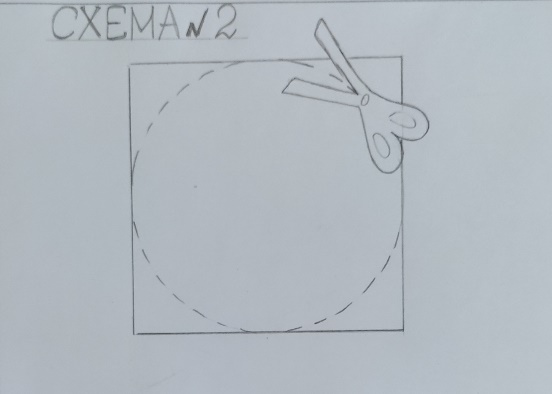 СХЕМА№2